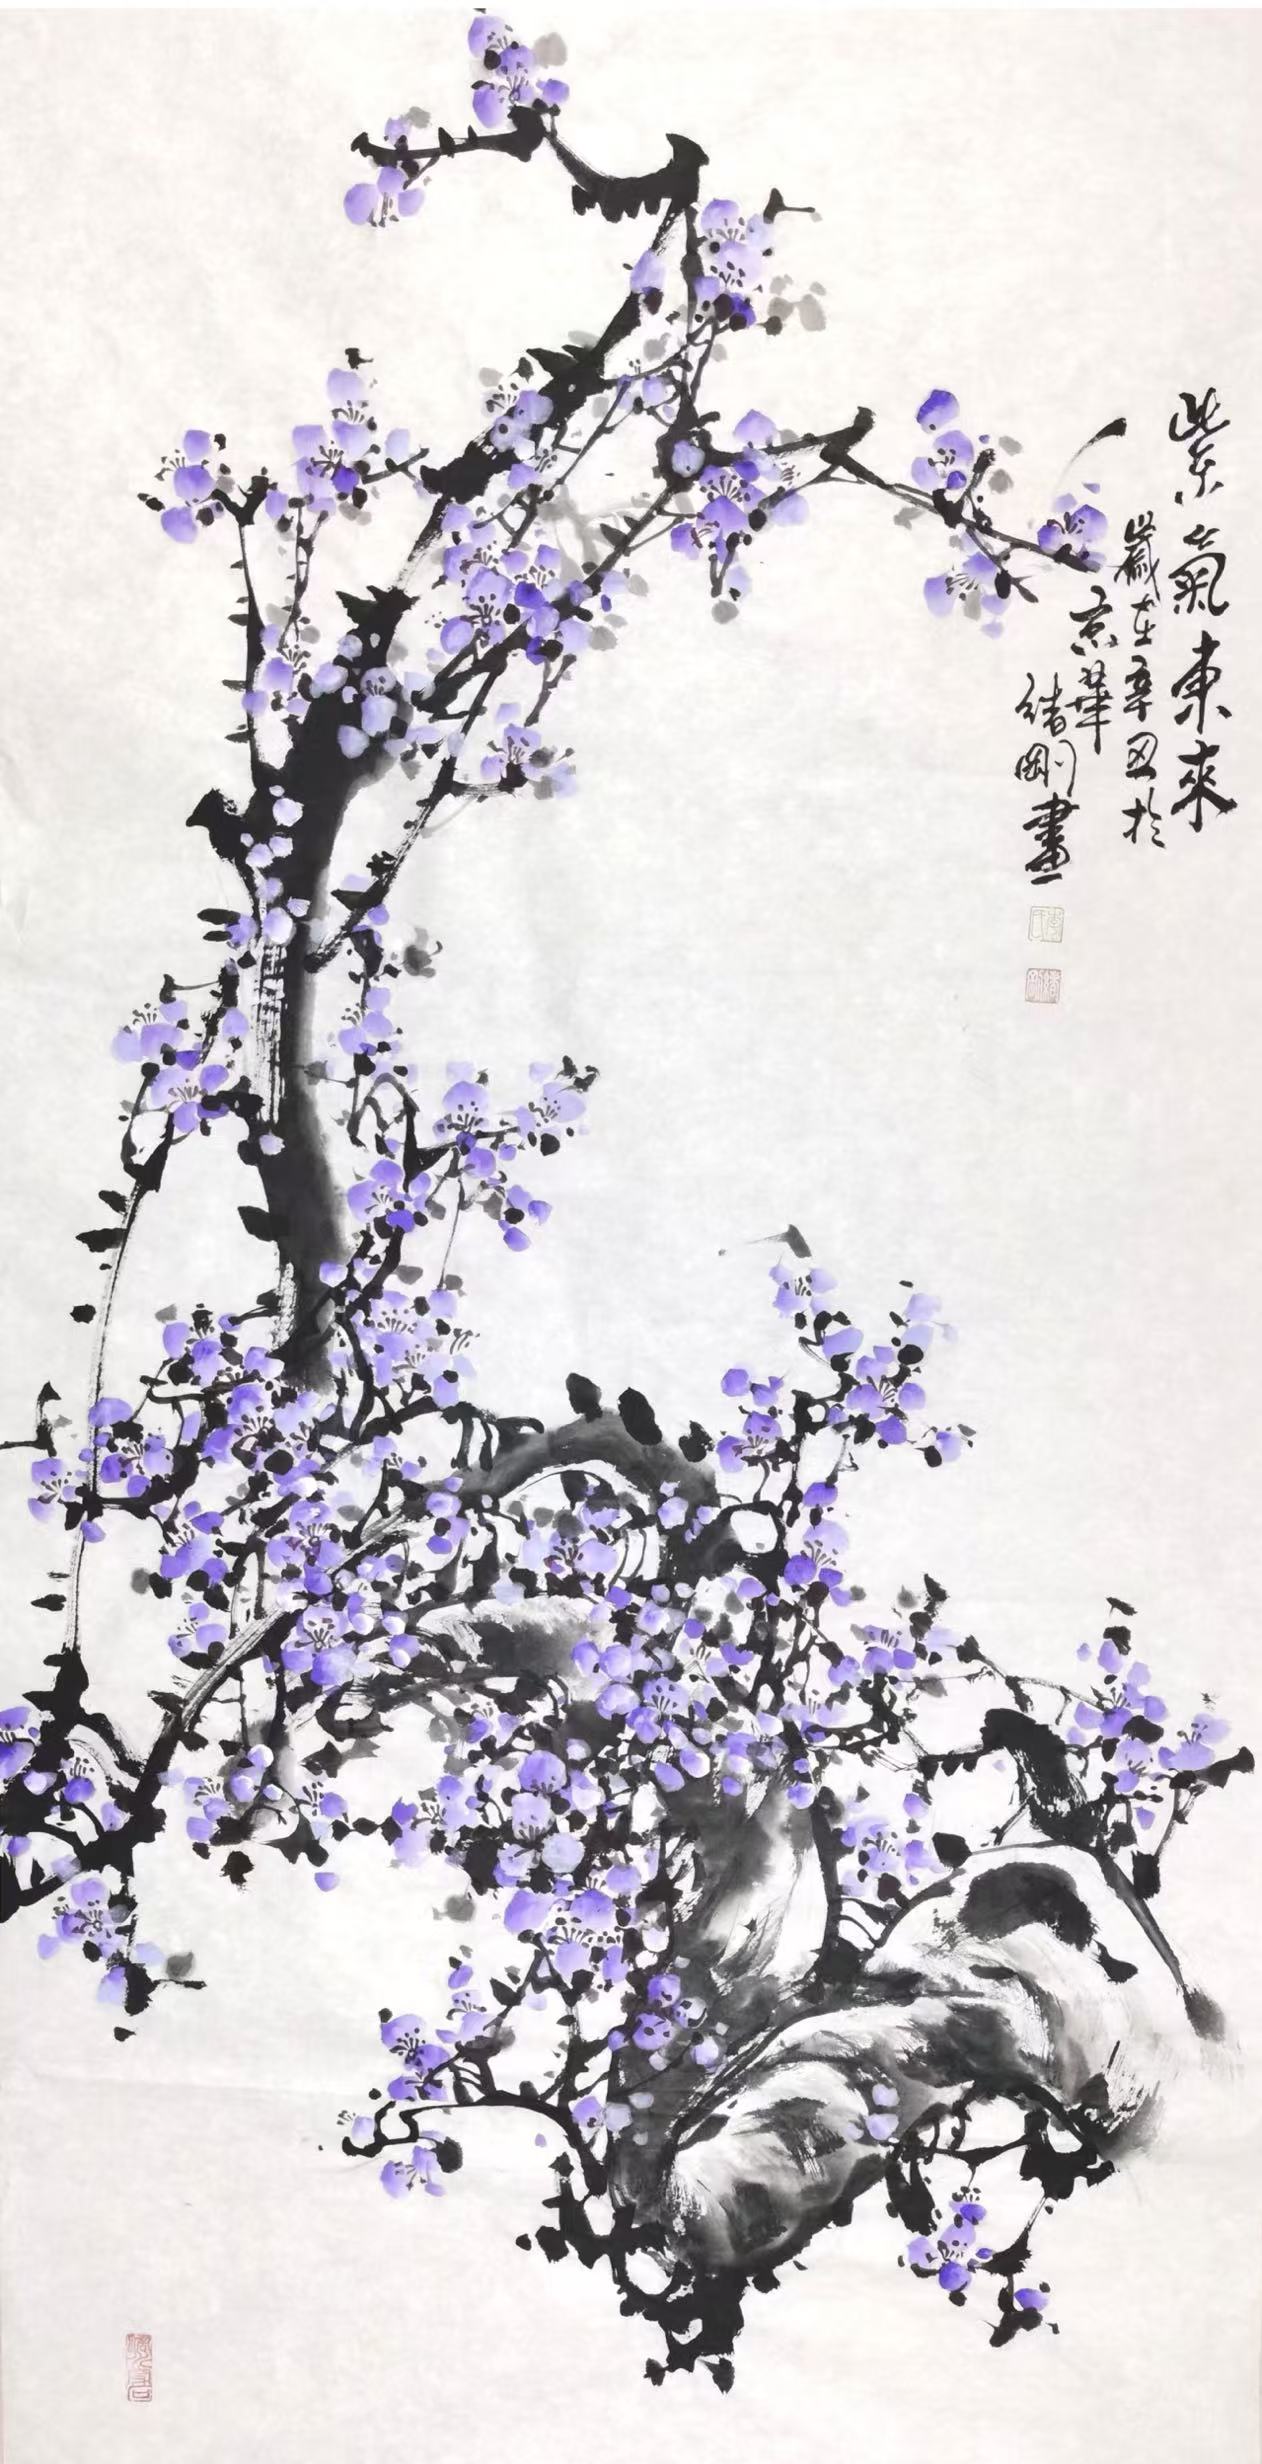 紫氣東來
歲在辛丑於
京華
緒剛畫